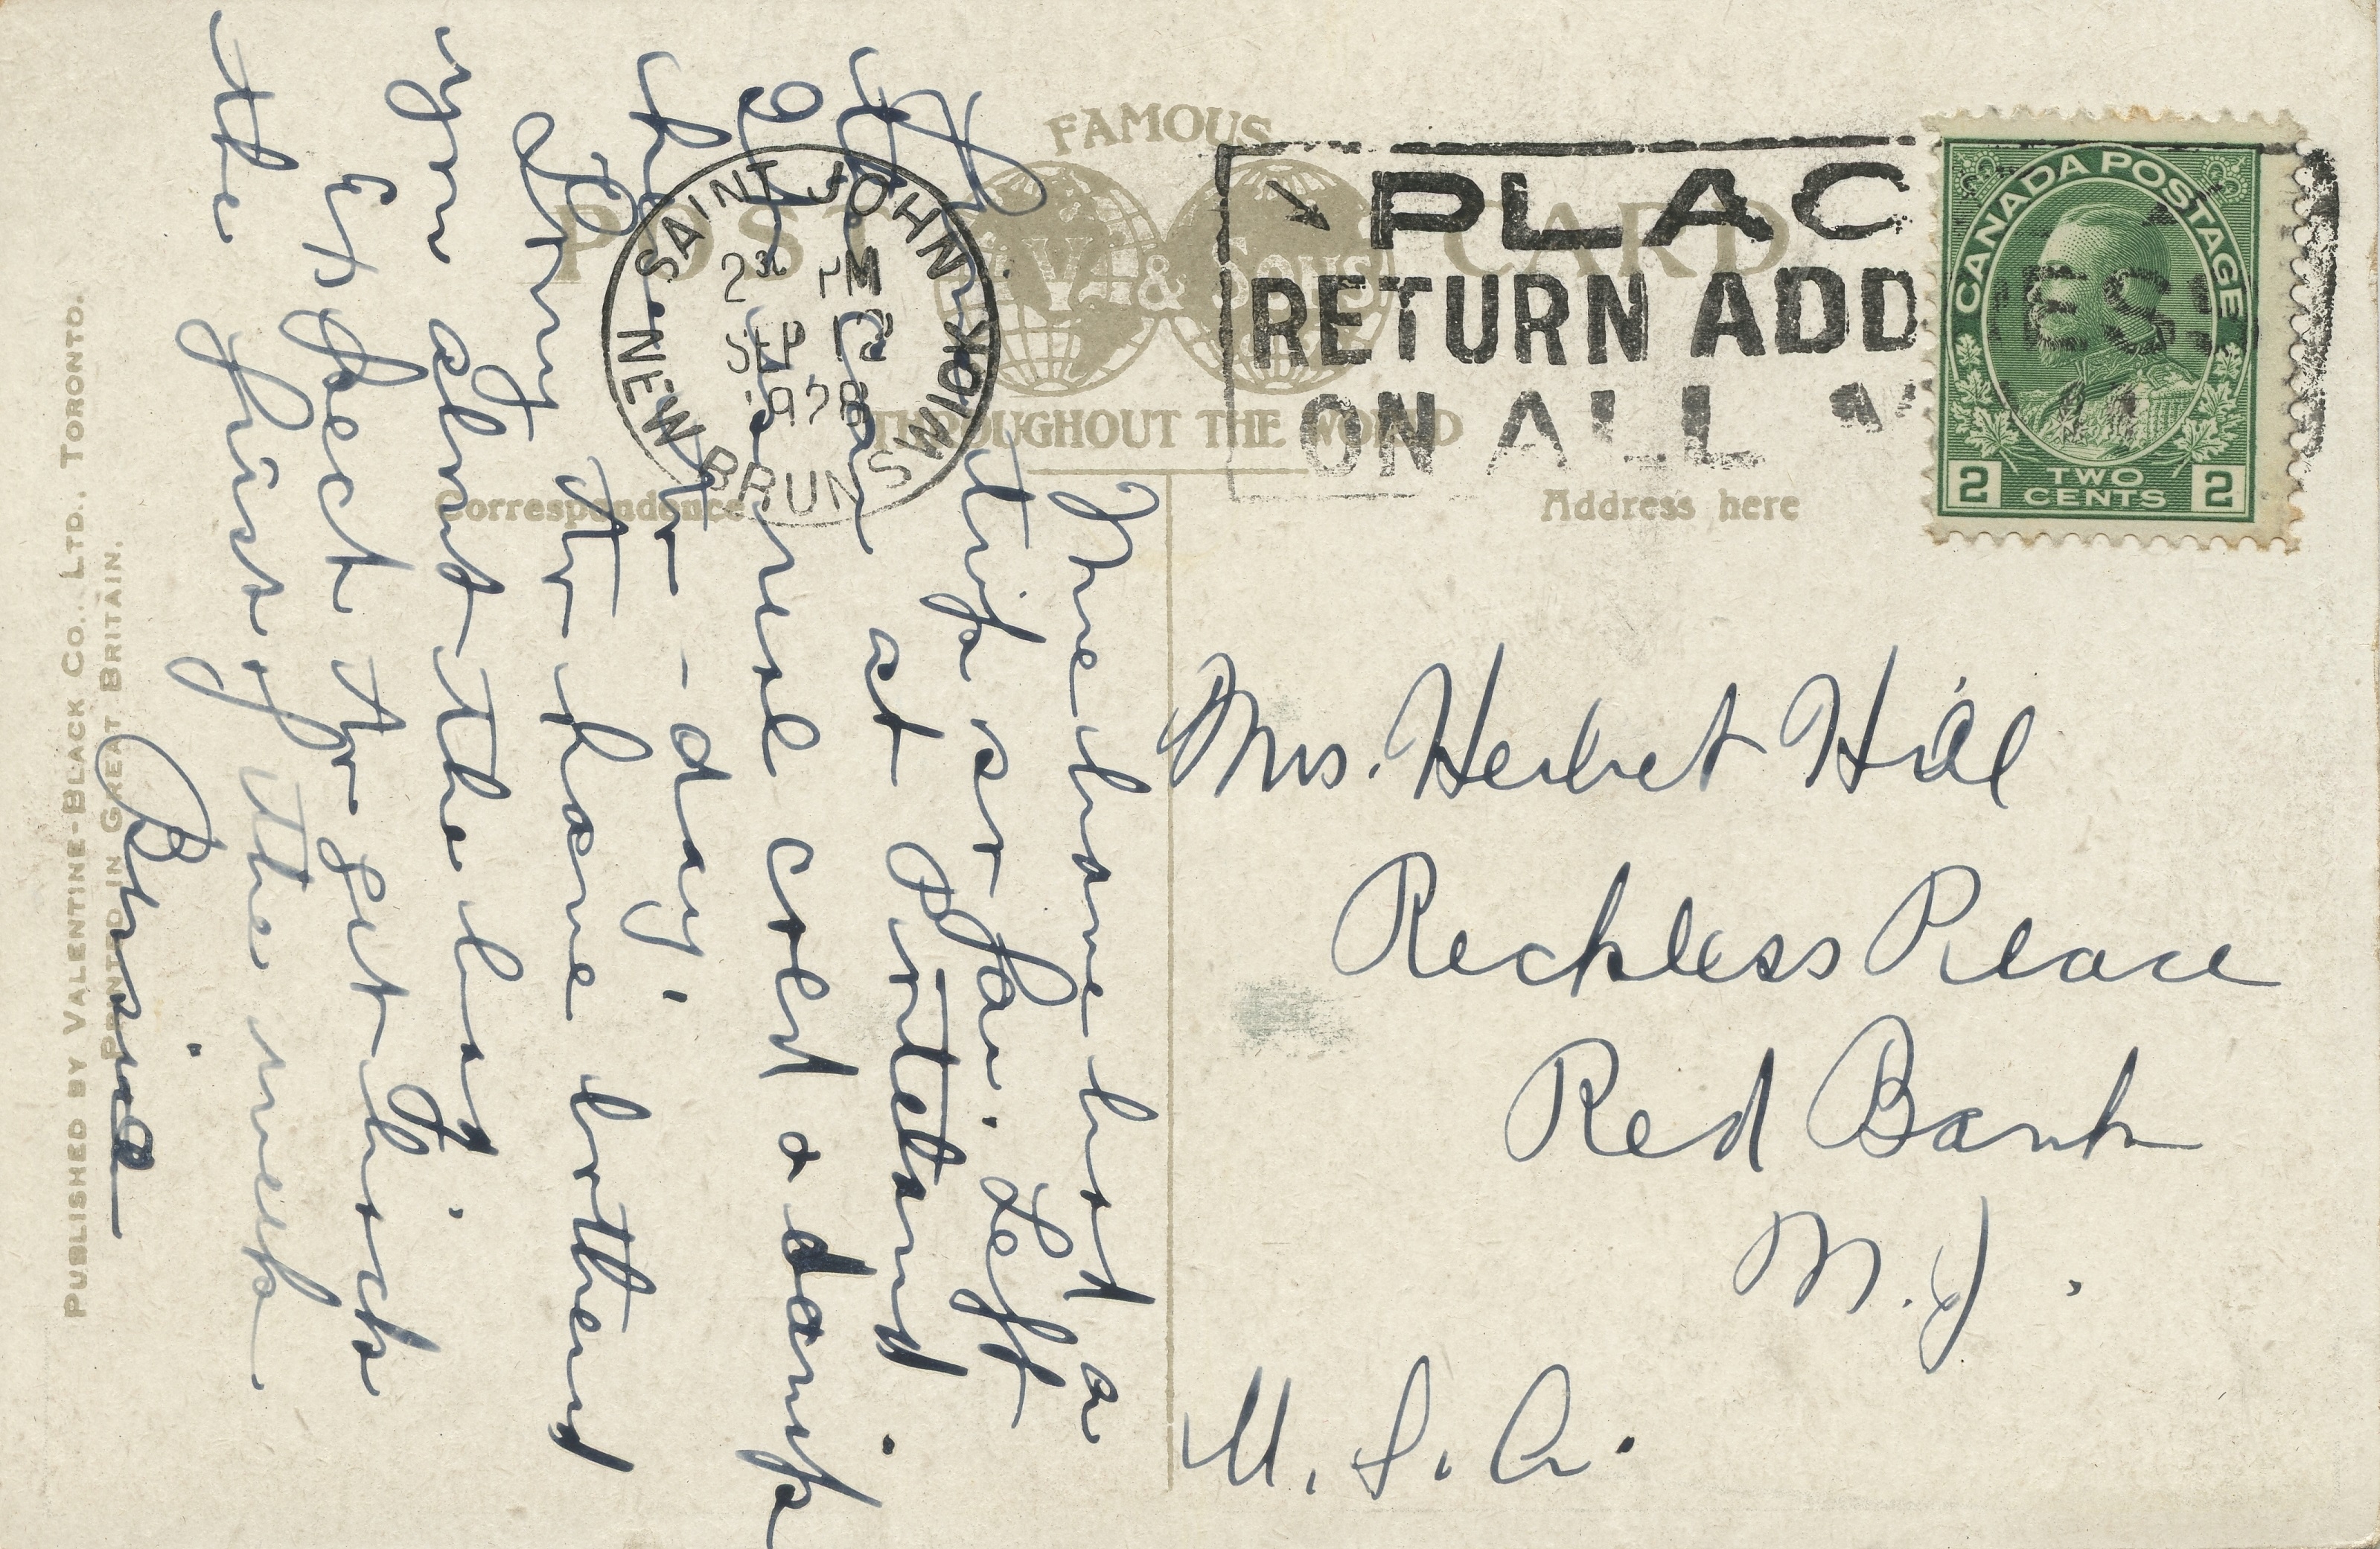 FAMOUS
POST CARD
V. & SONS
THROUGHOUT THE WORLD
Correspondence
Address here
SAINT JOHN
PM
SEP
1928
NEW BRUNSWICK
PLAC
RETURN ADDRESS
ON ALL
CANADA POSTAGE
2 TWO CENTS 2
We have had a
fine trip so far. Left
the car at Portland.
It is real cold & damp
here to-day.
Sorry to have bothered
you about the bag.
Expect to get back
the first of the week.
Mrs. Herbert Hill
Reckless Place
Red Bank
N.J.
U.S.A.
PUBLISHED BY VALENTINE-BLACK CO., LTD., TORONTO.
PRINTED IN GREAT BRITAIN.